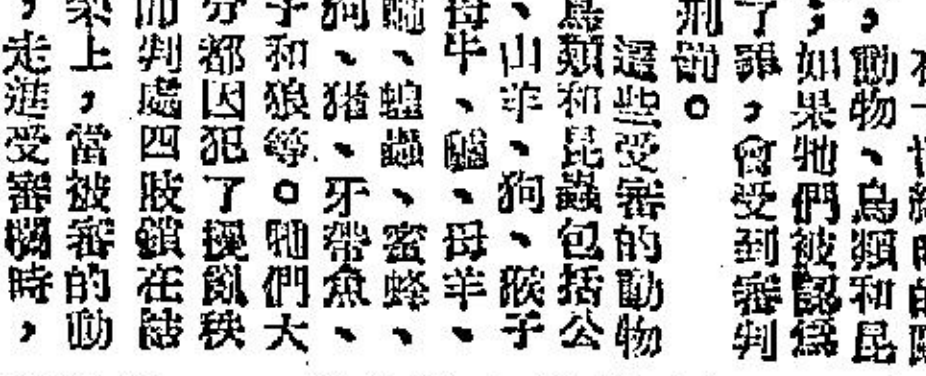 動物、鳥類和昆
；如果牠們被認爲
了罪，會受到審判
刑罰。
這些受審的動物
鳥類和昆蟲包括公
、山羊、狗、猴子
母牛、驢、母羊、
、蝗蟲、蜜蜂、
狗、猪、牙帶魚、
子和狼等。牠們大
分都因犯了擾亂秩
而判處四肢鎖在
上，當被審的動
走進受審欄時，